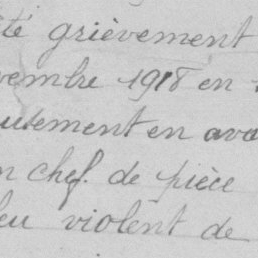 été grièvement
vembre 1918 en
eulement en ava
n chef. de pièce
feu violent de